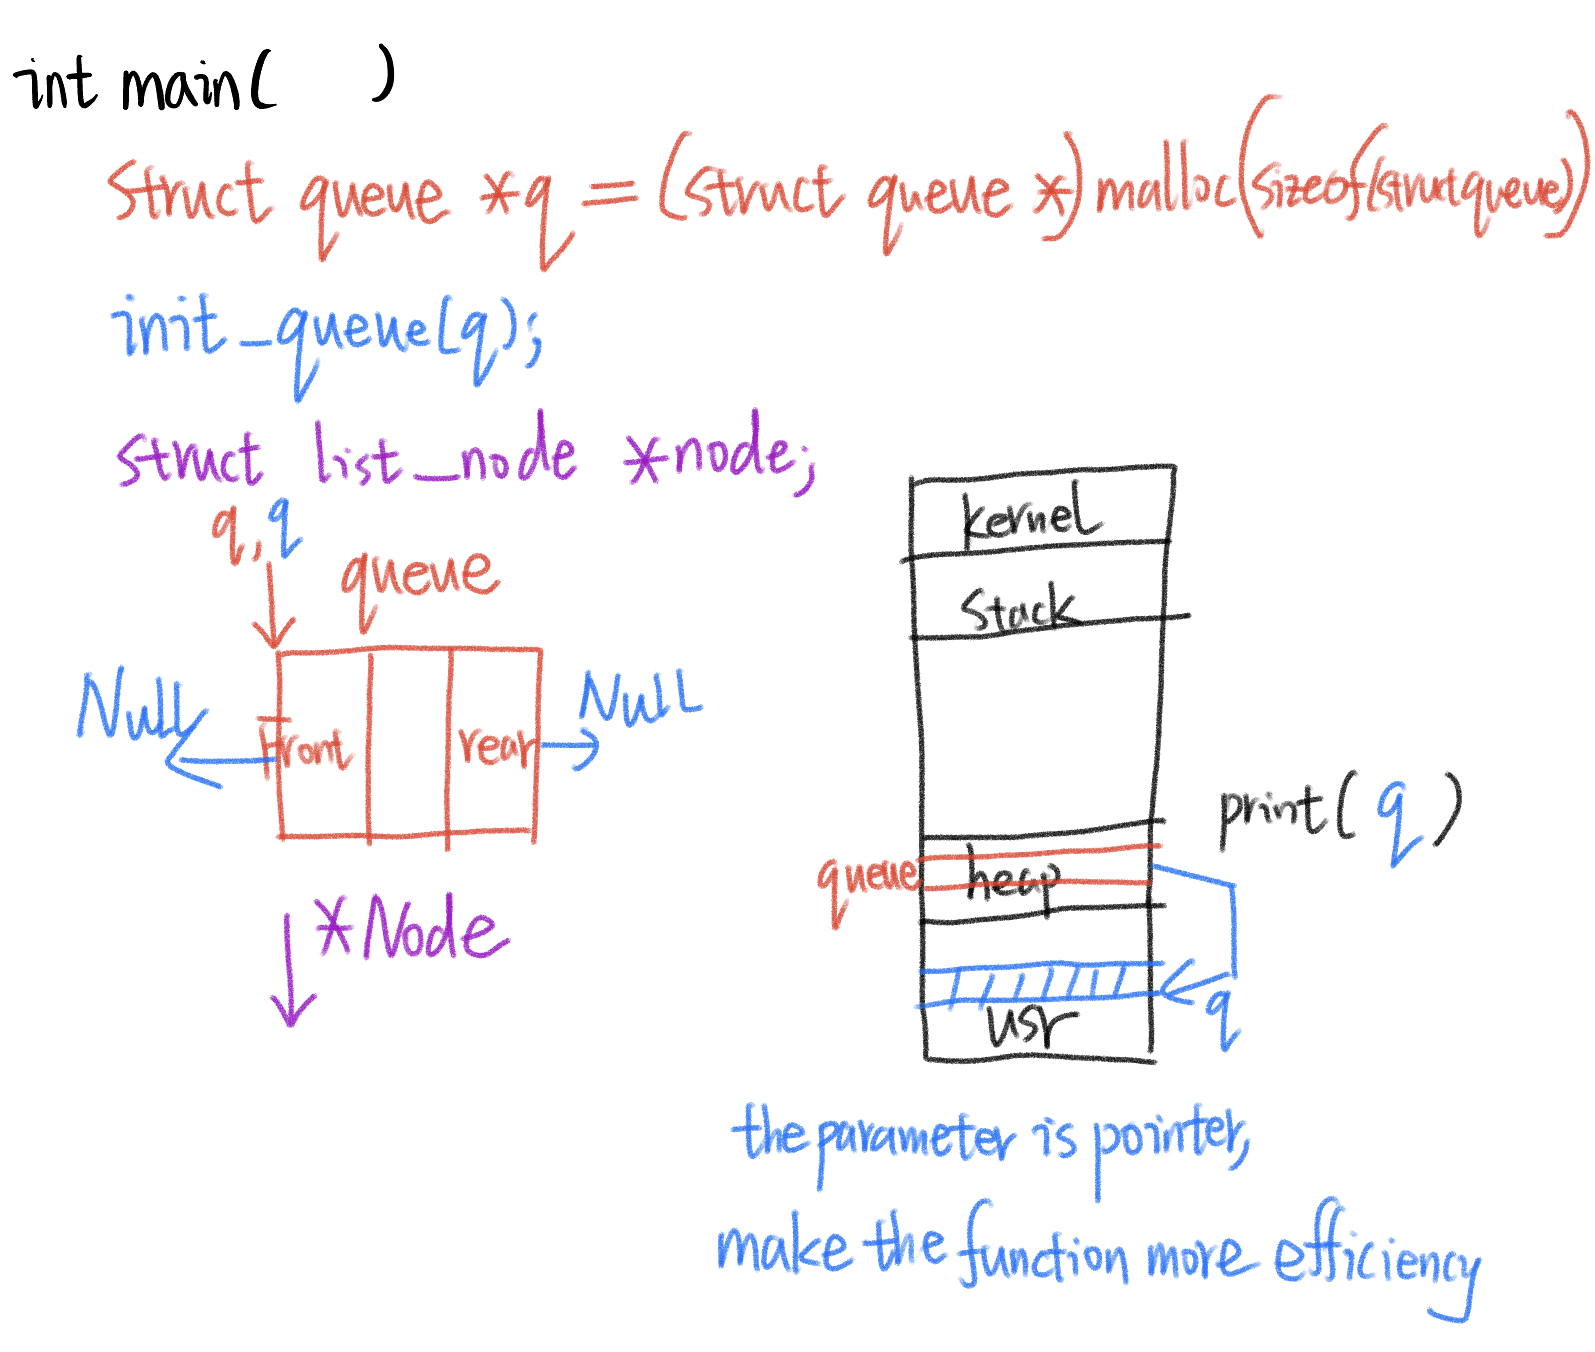 int main(    )
struct queue *q = (struct queue *) malloc(sizeof(struct queue))
init_queue(q);
struct list_node *node;
q, q
queue
Null
Front
rear
Null
*Node
kernel
Stack
print( q )
queue
heap
q
usr
the parameter is pointer,
make the function more efficiency